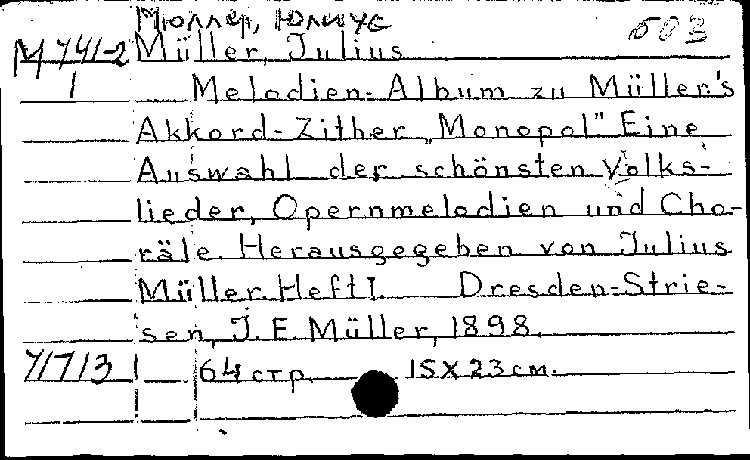 Мюллер, Юлиус
603
М 741-2 Müller, Julius
1 Melodien-Album zu Müller's
Akkord-Zither „Monopol" Eine
Auswahl der schönsten Volks-
lieder, Opernmelodien und Cho-
räle. Herausgegeben von Julius
Müller. Heft I. Dresden-Strie-
sen, J. E. Müller, 1898.
71713 64 стр. 15x23 см.